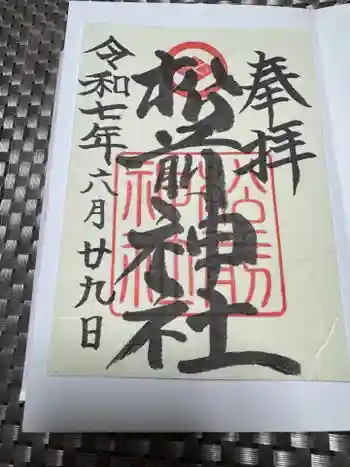 奉拝
松前神社
令和七年六月廿九日
松前
神社